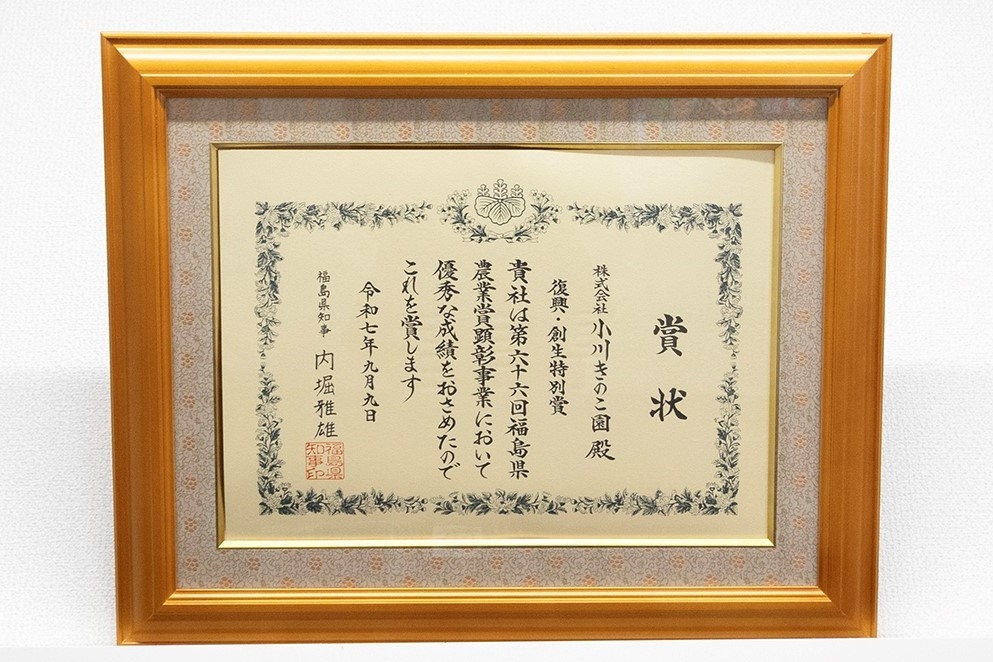 賞状
株式会社 小川きのこ園 殿
復興・創生特別賞
貴社は第六十六回福島県
農業賞顕彰事業において
優秀な成績をおさめたので
これを賞します
令和七年九月九日
福島県知事 内堀雅雄
福島県
知事印